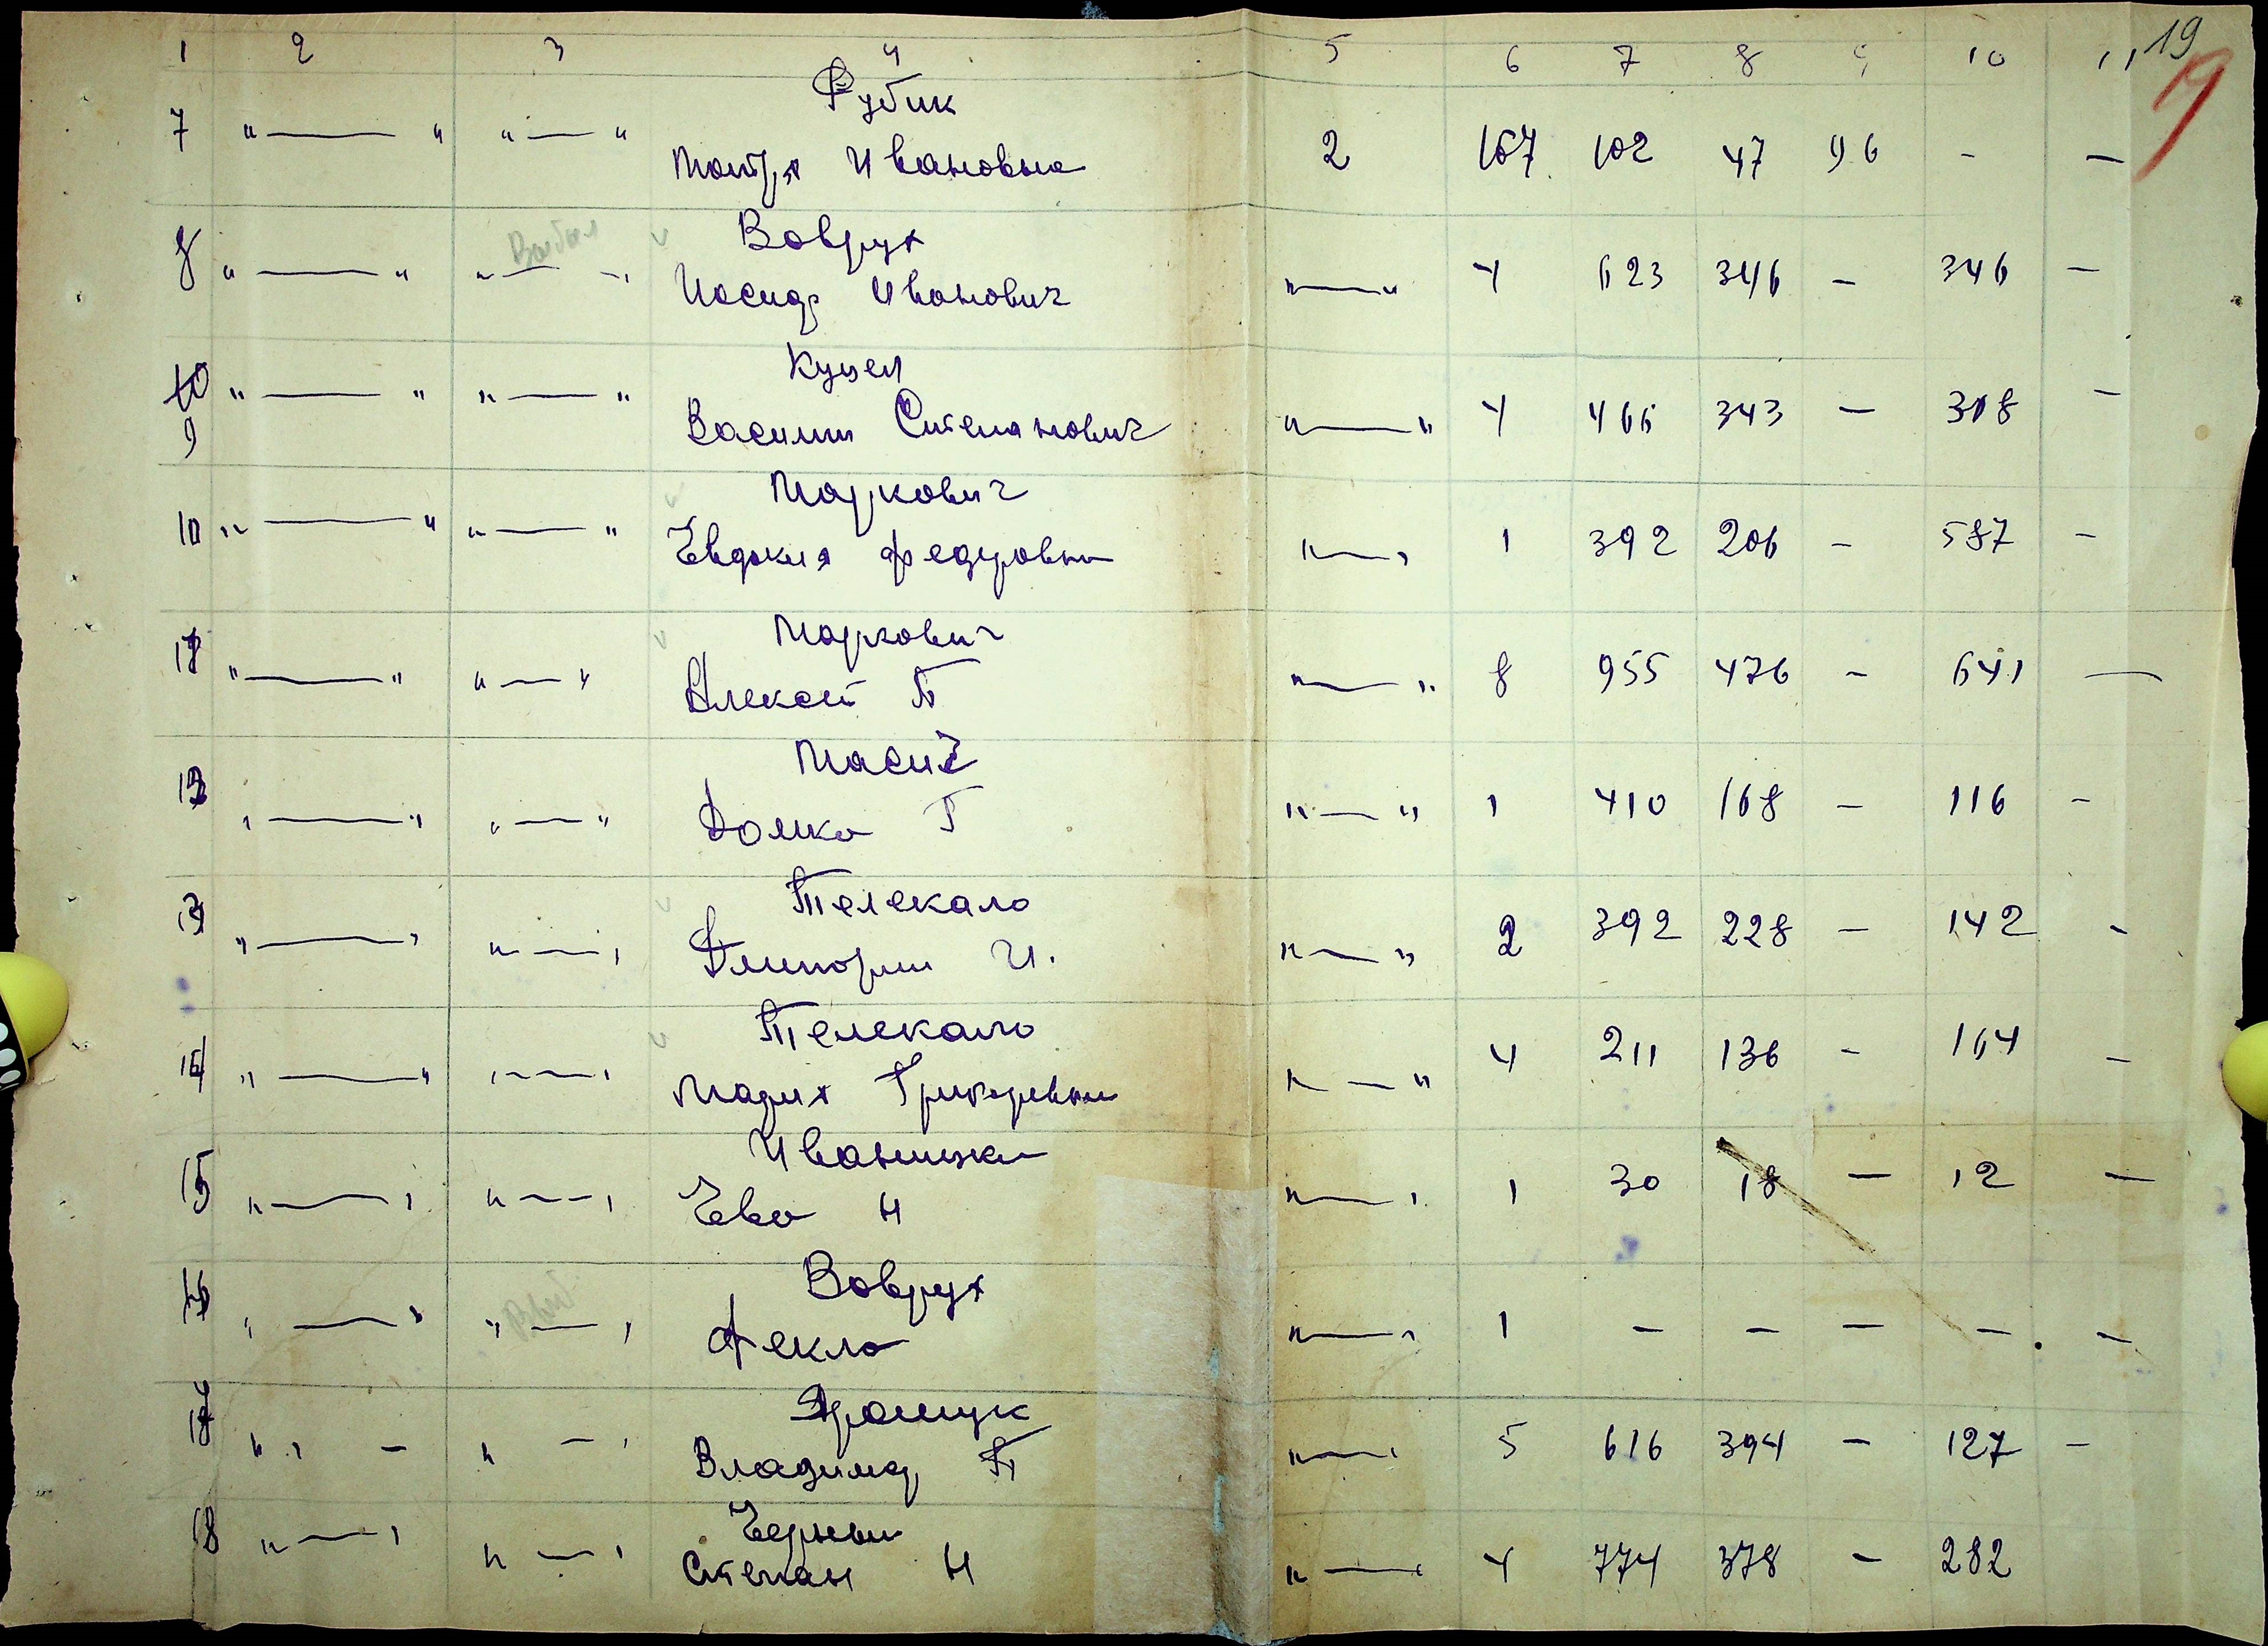 1 2 3 4 5 6 7 8 9 10 11 19
19
Рубик
7 "—" "—" Мотря Ивановна 2 167 102 47 96 - —
Выбыл v Воврух
8 "—" "—" Иосиф Иванович "—" 4 623 346 - 346 -
Куцел
10 "—" "—" Василии Степанович "—" 4 466 343 - 318 -
9
v Маркович
10 "—" "—" Евдокия Федоровна "—" 1 392 206 - 587 -
v Маркович
11 "—" "—" Алексей П "—" 8 955 476 - 641 —
Масич
12 "—" "—" Домка Г "—" 1 410 168 - 116 -
v Телекало
13 "—" "—" Дмитрии И. "—" 2 392 228 - 142 -
v Телекало
14 "—" "—" Мария Григоревна "—" 4 211 136 - 164 -
15 "—" "—" Ева Н "—" 1 30 18 - 12 -
Выб Воврух
16 "—" "—" Фекла "—" 1 - - - - -
17 "—" "—" Владимир П "—" 5 616 394 - 127 -
Черныи
18 "—" "—" Степан Н "—" 4 774 378 - 282